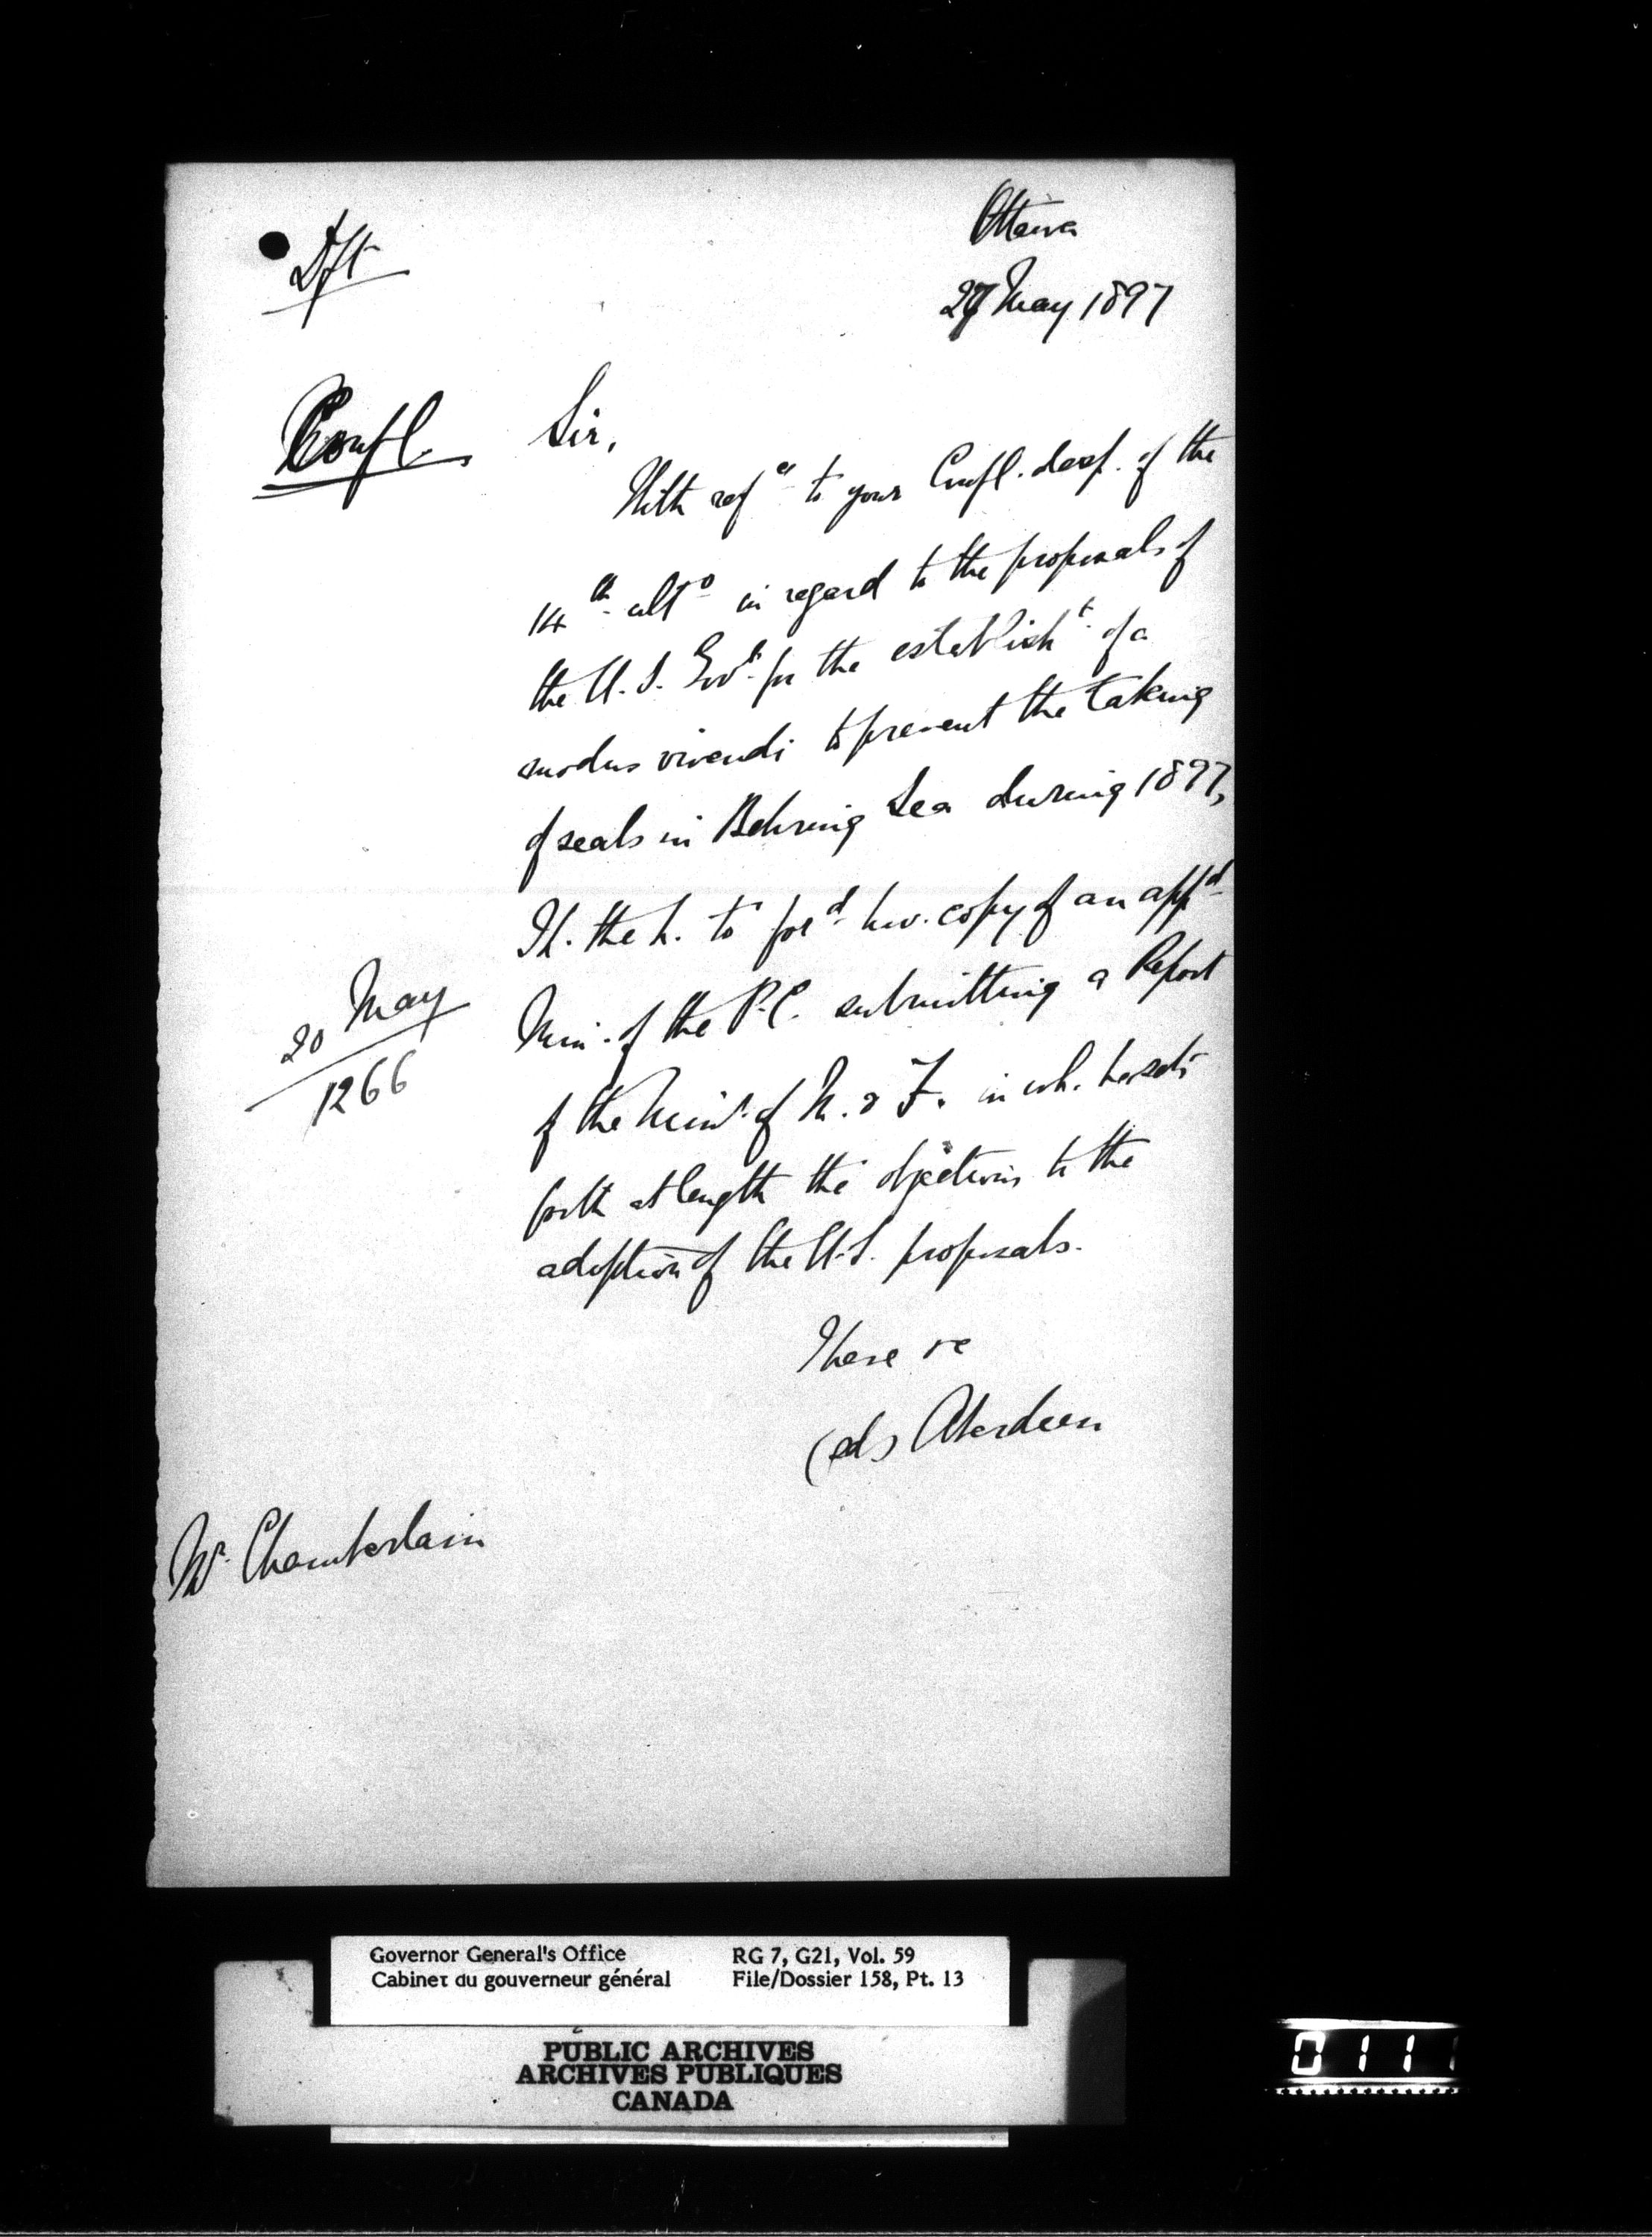 Dft
Ottawa
27 May 1897
Confl.
Sir,
With refce to your Confl. desp. of the
14th ulto in regard to the proposals of
the U.S. Govt. for the establisht. of a
modus vivendi to prevent the taking
of seals in Behring Sea during 1897,
I h. the h. to ford. hw. copy of an appd.
Min. of the P.C. submitting a Report
20 May
1266
of the Minr. of M. & F. in wh. he sets
forth at length the objections to the
adoption of the U.S. proposals.
I have &c
(sd) Aberdeen
Mr. Chamberlain
Governor General's Office
Cabinet du gouverneur général
RG 7, G21, Vol. 59
File/Dossier 158, Pt. 13
PUBLIC ARCHIVES
ARCHIVES PUBLIQUES
CANADA
011